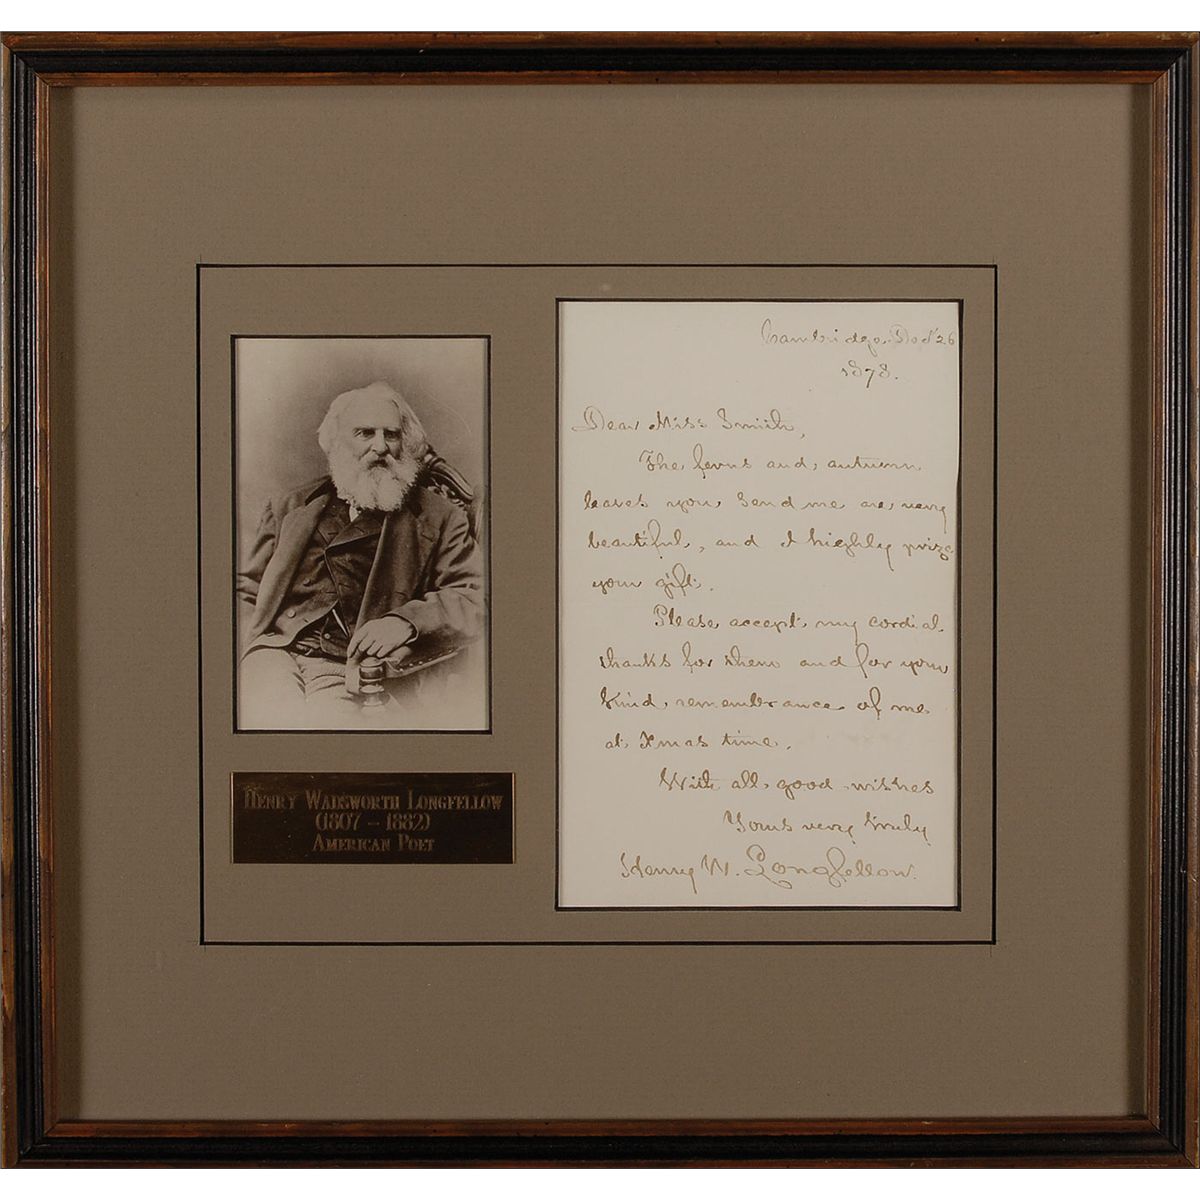 Cambridge, Dec 26
1878.
Dear Miss Smith,
The ferns and autumn
leaves you send me are very
beautiful, and I highly prize
your gift.
Please accept my cordial
thanks for them and for your
kind remembrance of me
at Xmas time.
With all good wishes
Yours very truly
Henry W. Longfellow.
HENRY WADSWORTH LONGFELLOW
(1807 – 1882)
AMERICAN POET